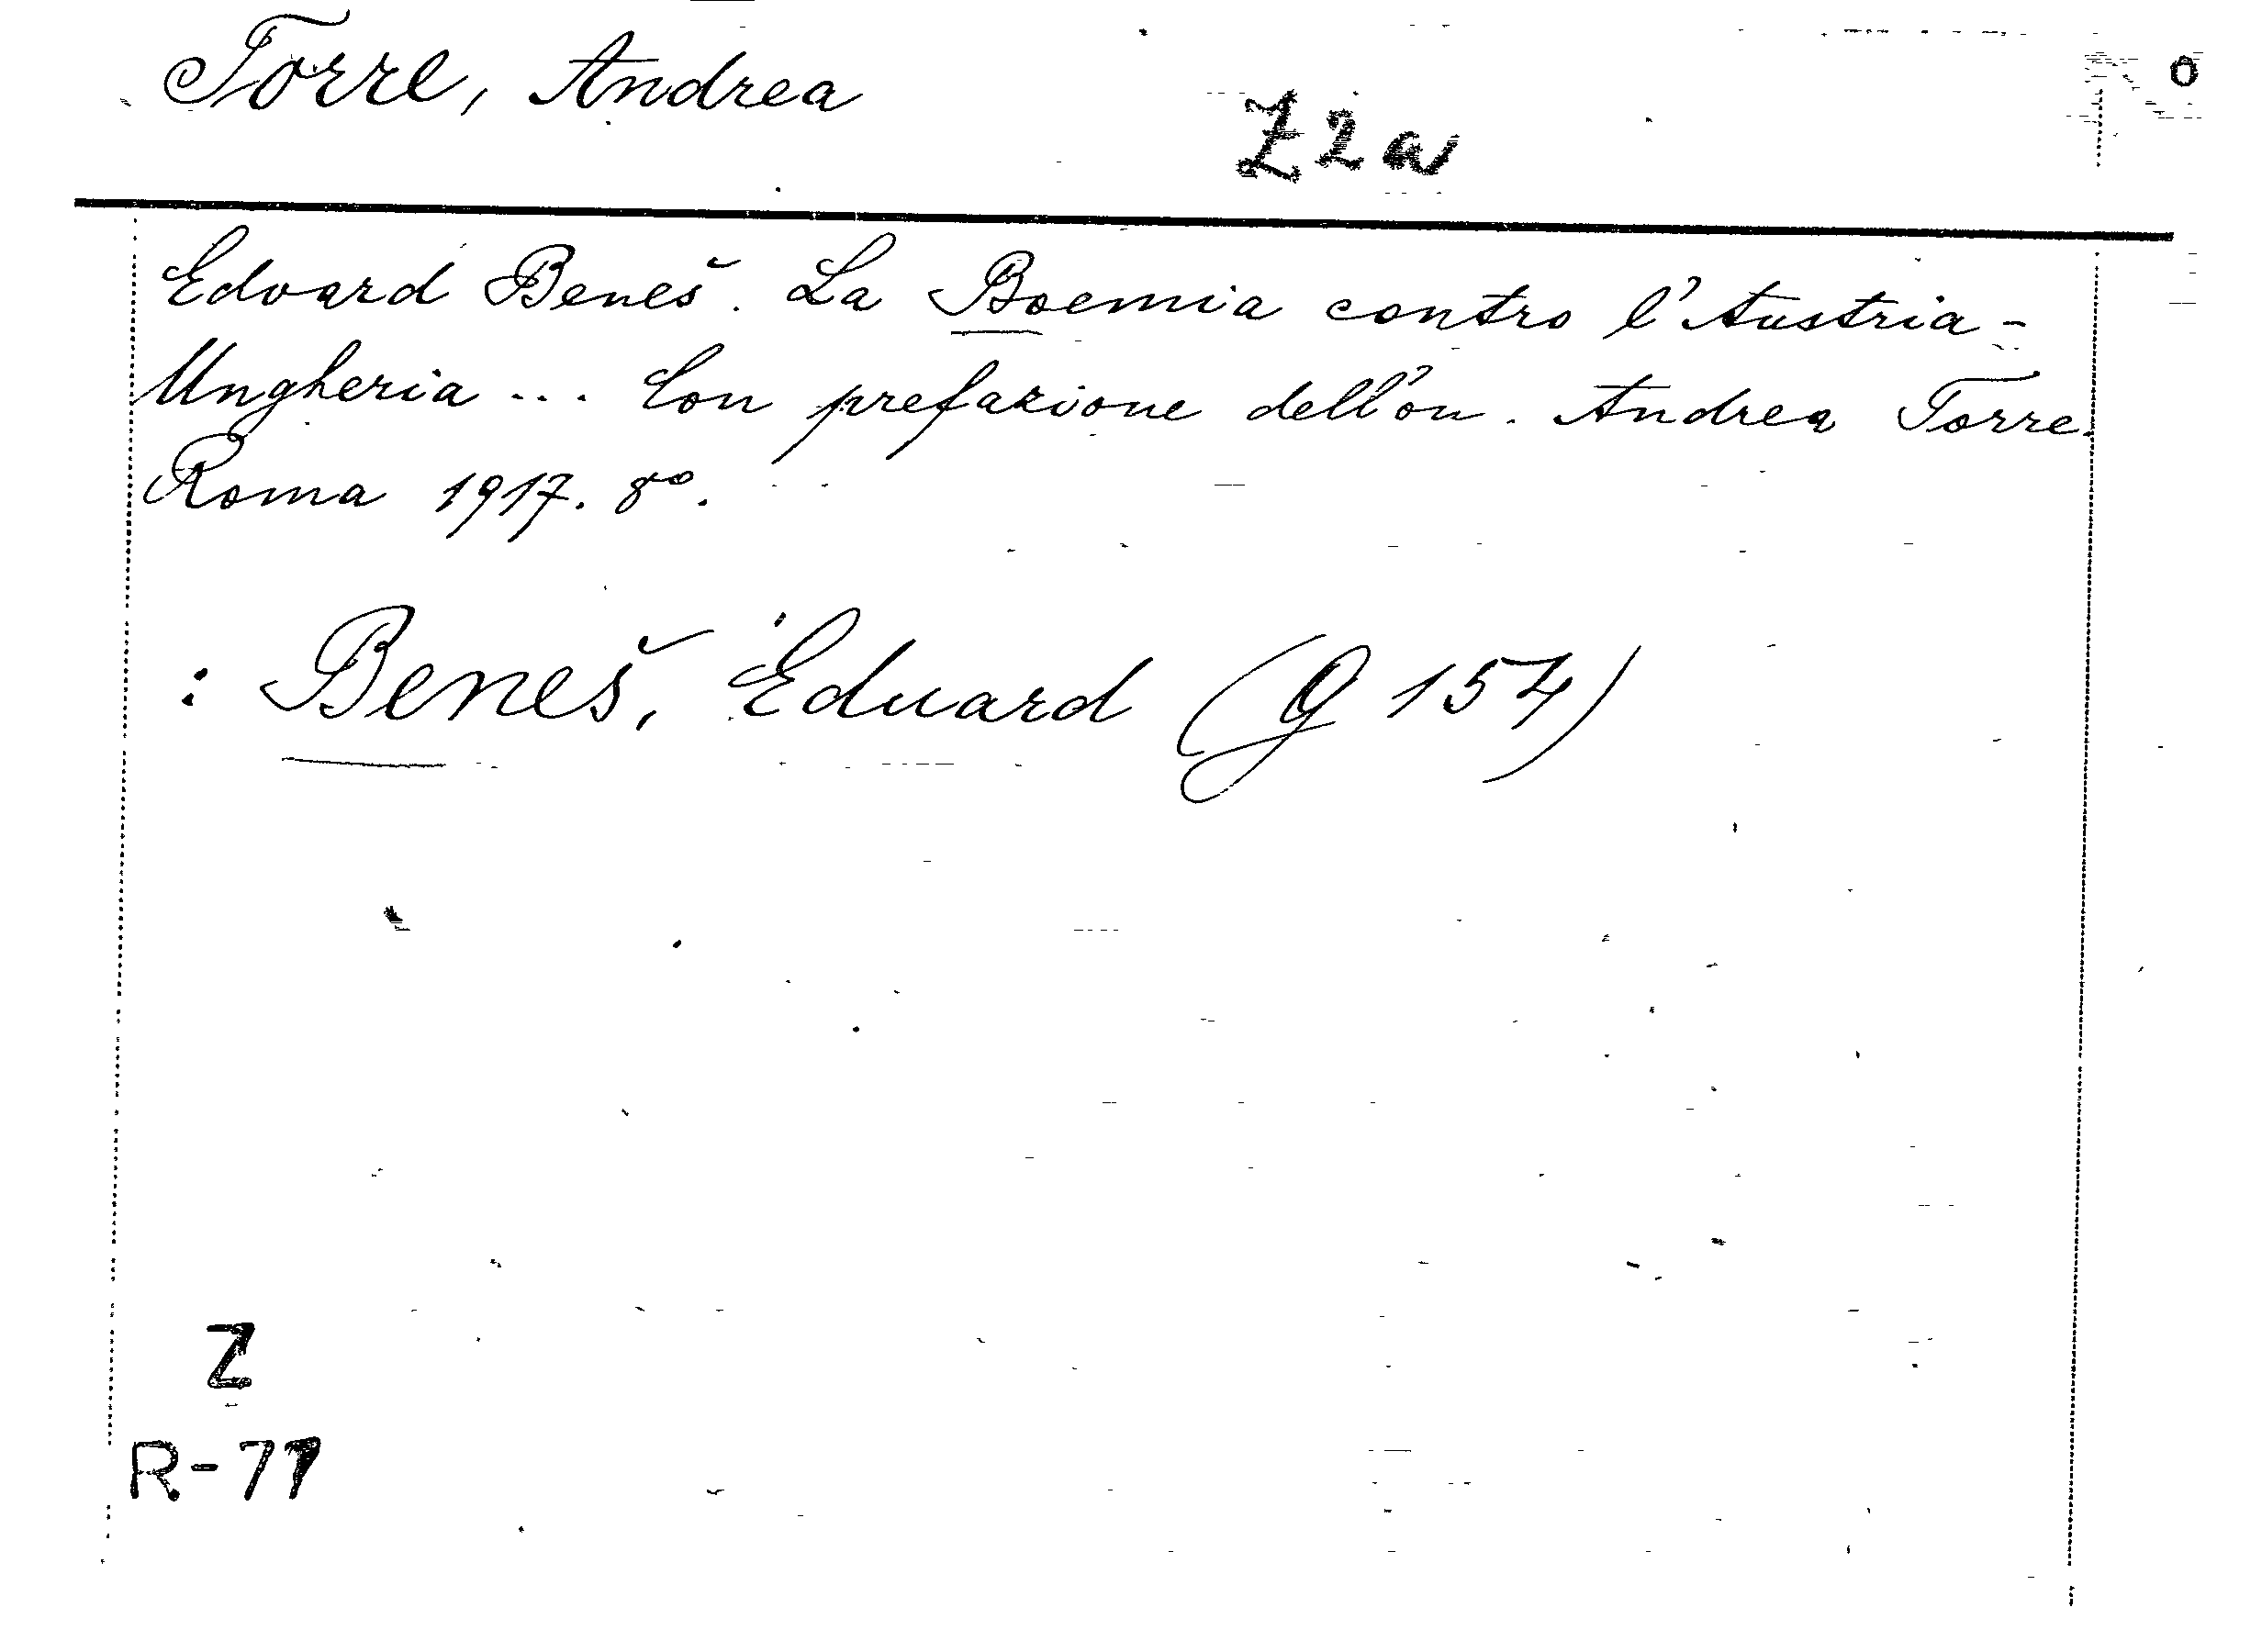 Torre, Andrea
Z2a
o
Edvard Beneš. La Boemia contro l'Austria-
Ungheria ... Con prefazione dell'on. Andrea Torre.
Roma 1917. 8º.
: Beneš, Eduard (G 154)
Z
R-77